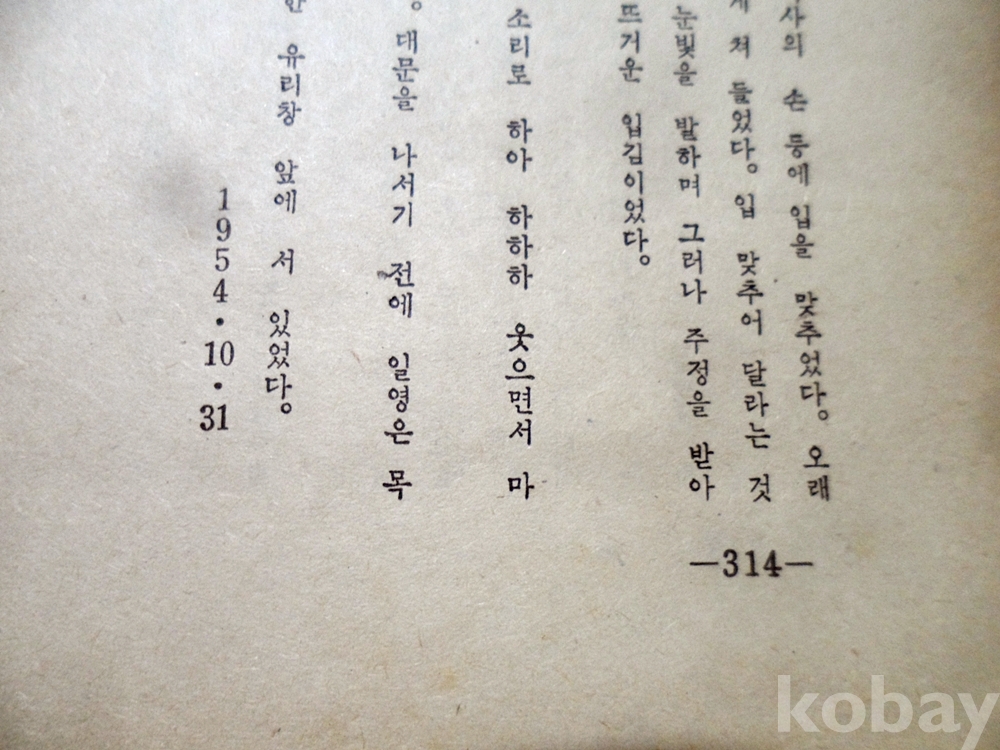 사의 손 등에 입을 맞추었다。 오래
쳐 들었다。 입 맞추어 달라는 것
눈빛을 발하며 그러나 주정을 받아
뜨거운 입김이었다。
소리로 하아 하하하 웃으면서 마
。 대문을 나서기 전에 일영은 목
유리창 앞에 서 있었다。
1954·10·31
—314—
kobay